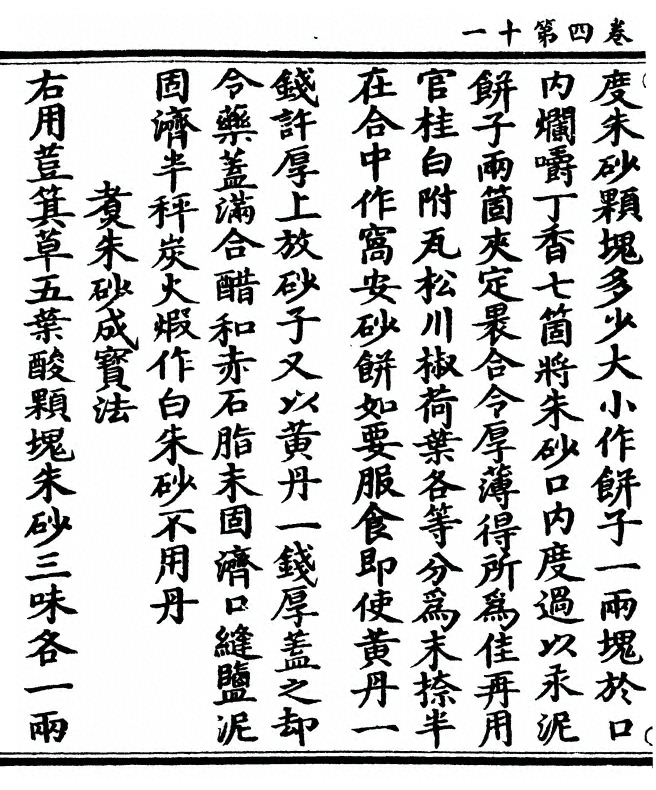 卷四第十一
度朱砂顆塊多少大小作餅子一兩塊於口
内爛嚼丁香七箇將朱砂口内度過以汞泥
餅子兩箇夾定㬥合令厚薄得所爲佳再用
官桂白附瓦松川椒荷葉各等分爲末捺半
在合中作窩安砂餅如要服食即使黄丹一
錢許厚上放砂子又以黄丹一錢厚蓋之却
令藥蓋滿合醋和赤石脂末固濟口縫鹽泥
固濟半秤炭火煅作白朱砂不用丹
煑朱砂成寳法
右用荳箕草五葉酸顆塊朱砂三味各一兩